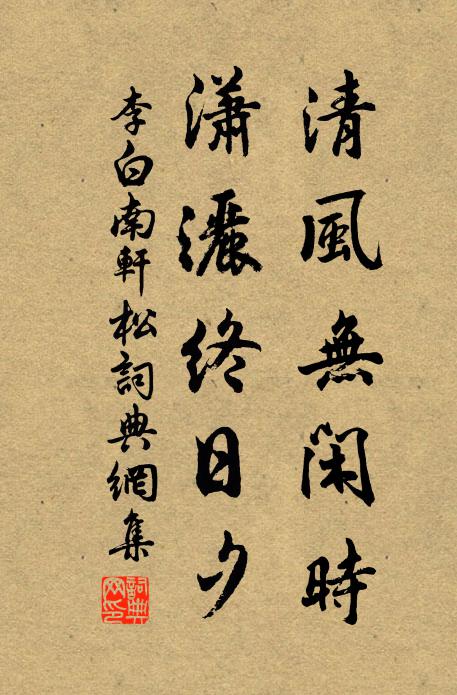 清風無閑時
瀟灑終日夕
李白南軒松詞典網集
詞典網印